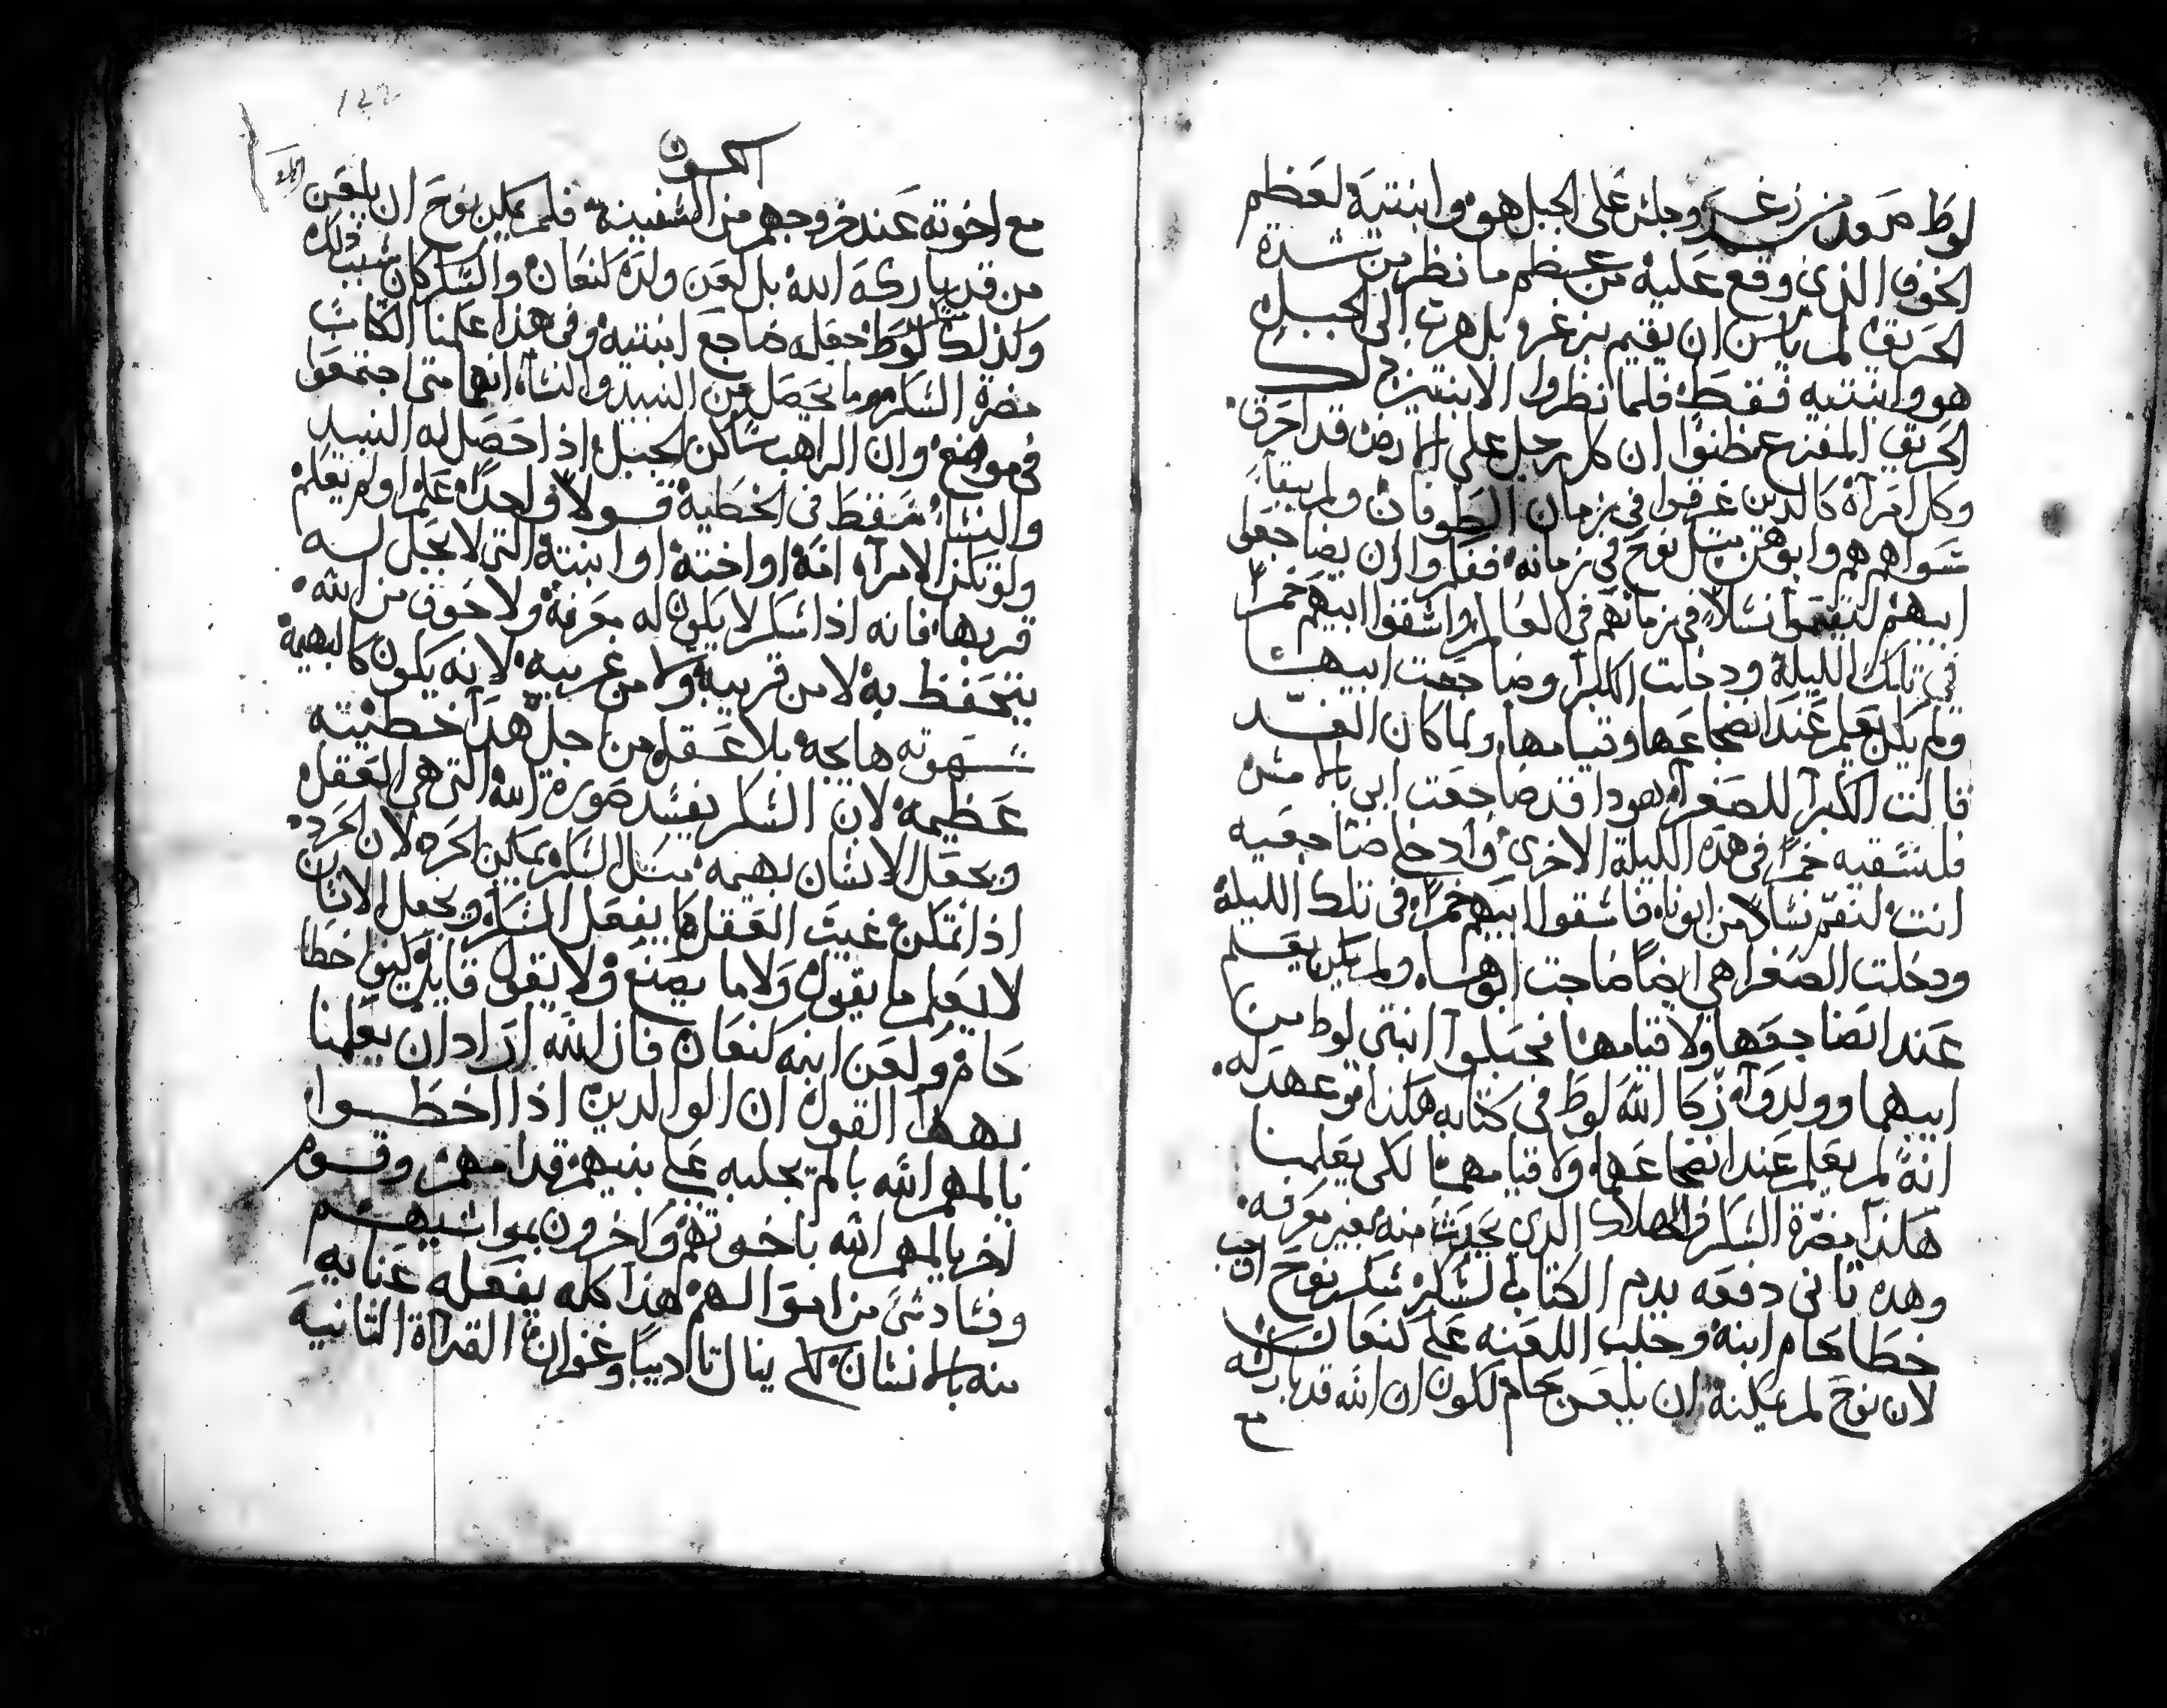 لوط صعد من زغر وجلس على الجبل هو وابنتيه لعظم
الخوف الذي وقع عليه من عظم ما نظر من شدة
الحريق لم ياسن ان يقيم بزغر بل هرب الى الجبل
هو وابنتيه فقط فلما نظروا الابنتين ذلك
الحريق المفزع ظنوا ان كل رجل على الارض قد احرق
وكل امرآة كالدين غرقوا في زمان الطوفان ولم يبقا
سواهم هم وابوهن مثل نوح في زمانه ففكروا ان يضاجعو
ابيهم لتقيموا نسلاً في زمانهم في العالم واسقوا ابيهم خمراً
في تلك الليلة ودخلت الكبرا وضاجعت ابيها
ولم يكن يعلم عند انضجاعها وقيامها ولما كان الغد
قالت الكبرا للصغرا هودا قد ضاجعت ابي بالامس
فلنسقيه خمراً في هذه الليلة الاخرى وادخلي ضاجعيه
انت لنقم نسلاً من ابونا فاسقوا ابيهم خمراً في تلك الليلة
ودخلت الصغرا هي ايضاً ضاجت ابوها ولم يكن يعلم
عند انضاجعها ولا قيامها فحبلوا ابنتي لوط من
ابيهما وولدوا زكا الله لوط في كتابه هكذا وعهد له
انه لم يعلم عند انضجاعها ولا قيامهما لكي يعلمنا
هكذا مضرة السكر والهلاك الدي يحدث منه بغير معرفه
وهده تاني دفعه يدم الكتاب السكر سكر نوح اوجب
خطا لحام ابنه وجلب اللعنه على كنعان
لان نوح لم يمكنه ان يلعن حام لكون ان الله قد باركه
مع
الكون
مع اخوته عند خروجهم من السفينة فلم يمكن نوح ان يلعن
من قد باركه الله بل لعن ولده كنعان والسكر كان سبب ذلك
وكذلك لوط جعله ضاجع ابنتيه وفي هذا علمنا الكتاب
مضرة السكر وما يحصل من النبيد والنسا انهما متى اجتمعوا
في موضع وان الراهب ساكن الجبل اذا حصل له النبيد
والنسا سقط في الخطية قولا واحداً علم او لم يعلم
ولو تكن الامرآه امه او اخته او ابنته التي لا يحل له
قربها فانه اذا سكر لا يكون له معرفة ولا خوف من الله
يتحفظ به لا من قريبه ولا من غريبه لانه يكون كالبهيمة
شهوته هايجه بلا عقل من اجل هدا خطيته
عظيمه لان السكر يفسد صورة الله التي هي العقل
ويجعل الانسان بهيمه متل السكر تمكين الحرد لان الحرد
اذا تمكن غيب العقل كما يفعل السكر ويجعل الانسان
لا يعلم ما يقول ولا ما يصنع ولا يقول قايل كيف خطا
حام ولعن ابنه كنعان فان الله اراد ان يعلمنا
بهدا القول ان الوالدين اذا اخطوا
يالمهم الله بالم يجلبه على بنيهم قدامهم وقوم
اخر يالمهم الله باخوتهم واخرون بمواشيهم
وفساد شي من اموالهم هذا كله يفعله عنايه
منه بالانسان كي ينال تاديباً وغفران القرآة التانية